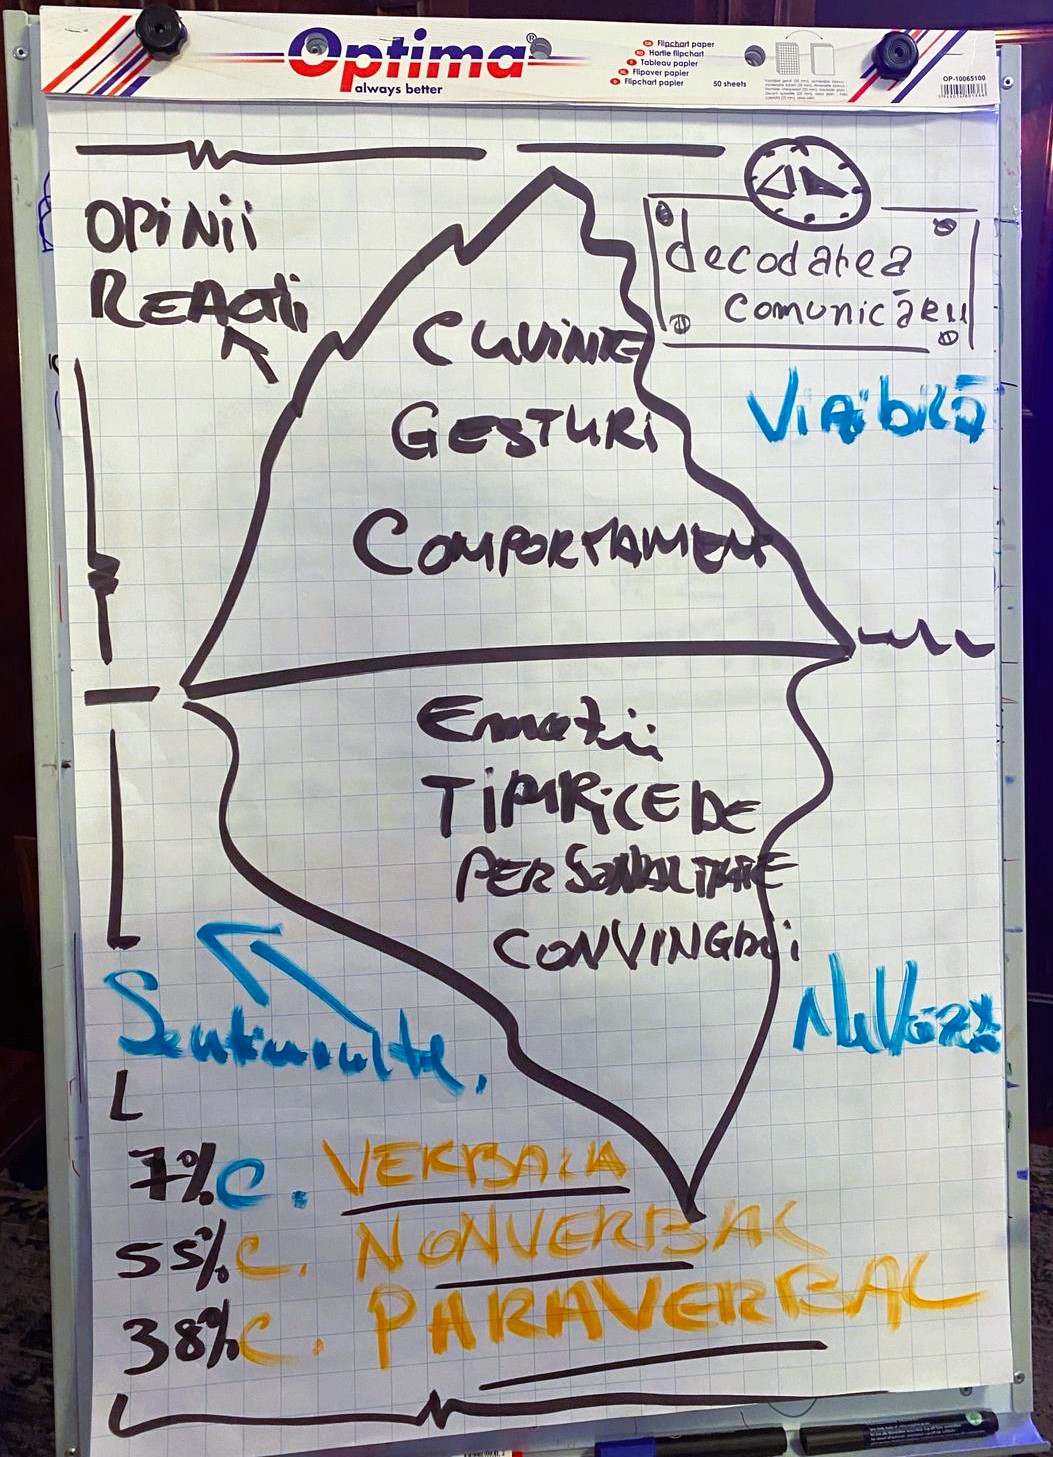 Optima®
always better
Flipchart paper
Hartie flipchart
Tableau papier
Flipover papier
Flipchart papier
50 sheets
OP-10065100
OPiNii
REACții
decodarea
comunicării
CUVINTE
GESTURi
COMPORTAMENT
Vizibilă
Emoții
TIPURiCE DE
PERSONALITATE
CONVINGERi
Sentimente.
7% C. VERBALA
55% C. NONVERBAL
38% C. PARAVERBAL